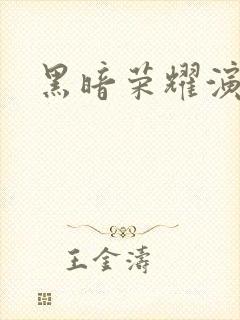 黑暗荣耀演
王金涛